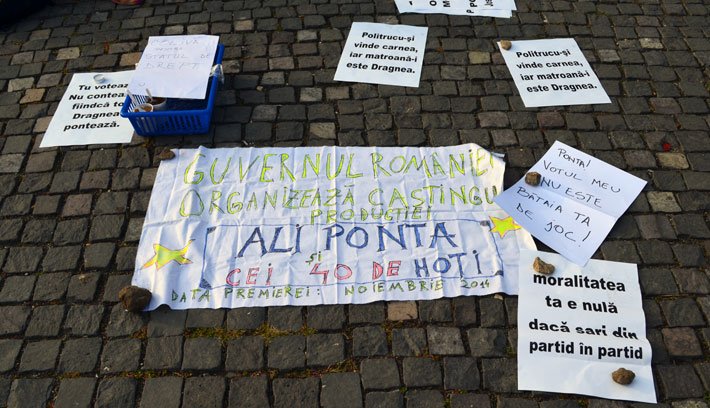 Politrucu-și
vinde carnea,
iar matroană-i
este Dragnea.
Politrucu-și
vinde carnea,
iar matroană-i
este Dragnea.
STATUL DE
DREPT
Tu votează
Nu contea
fiindcă to
Dragnea
pontează.
GUVERNUL ROMÂNIE
ORGANIZEAZĂ CASTINGU
PRODUCȚIEI
ALI PONTA
ȘI
CEI 40 DE HOȚI
DATA PREMIEREI: NOIEMBRIE 2014
PONTA!
VOTUL MEU
NU ESTE
BĂTAIA TA
DE JOC!
moralitatea
ta e nulă
dacă sari din
partid în partid